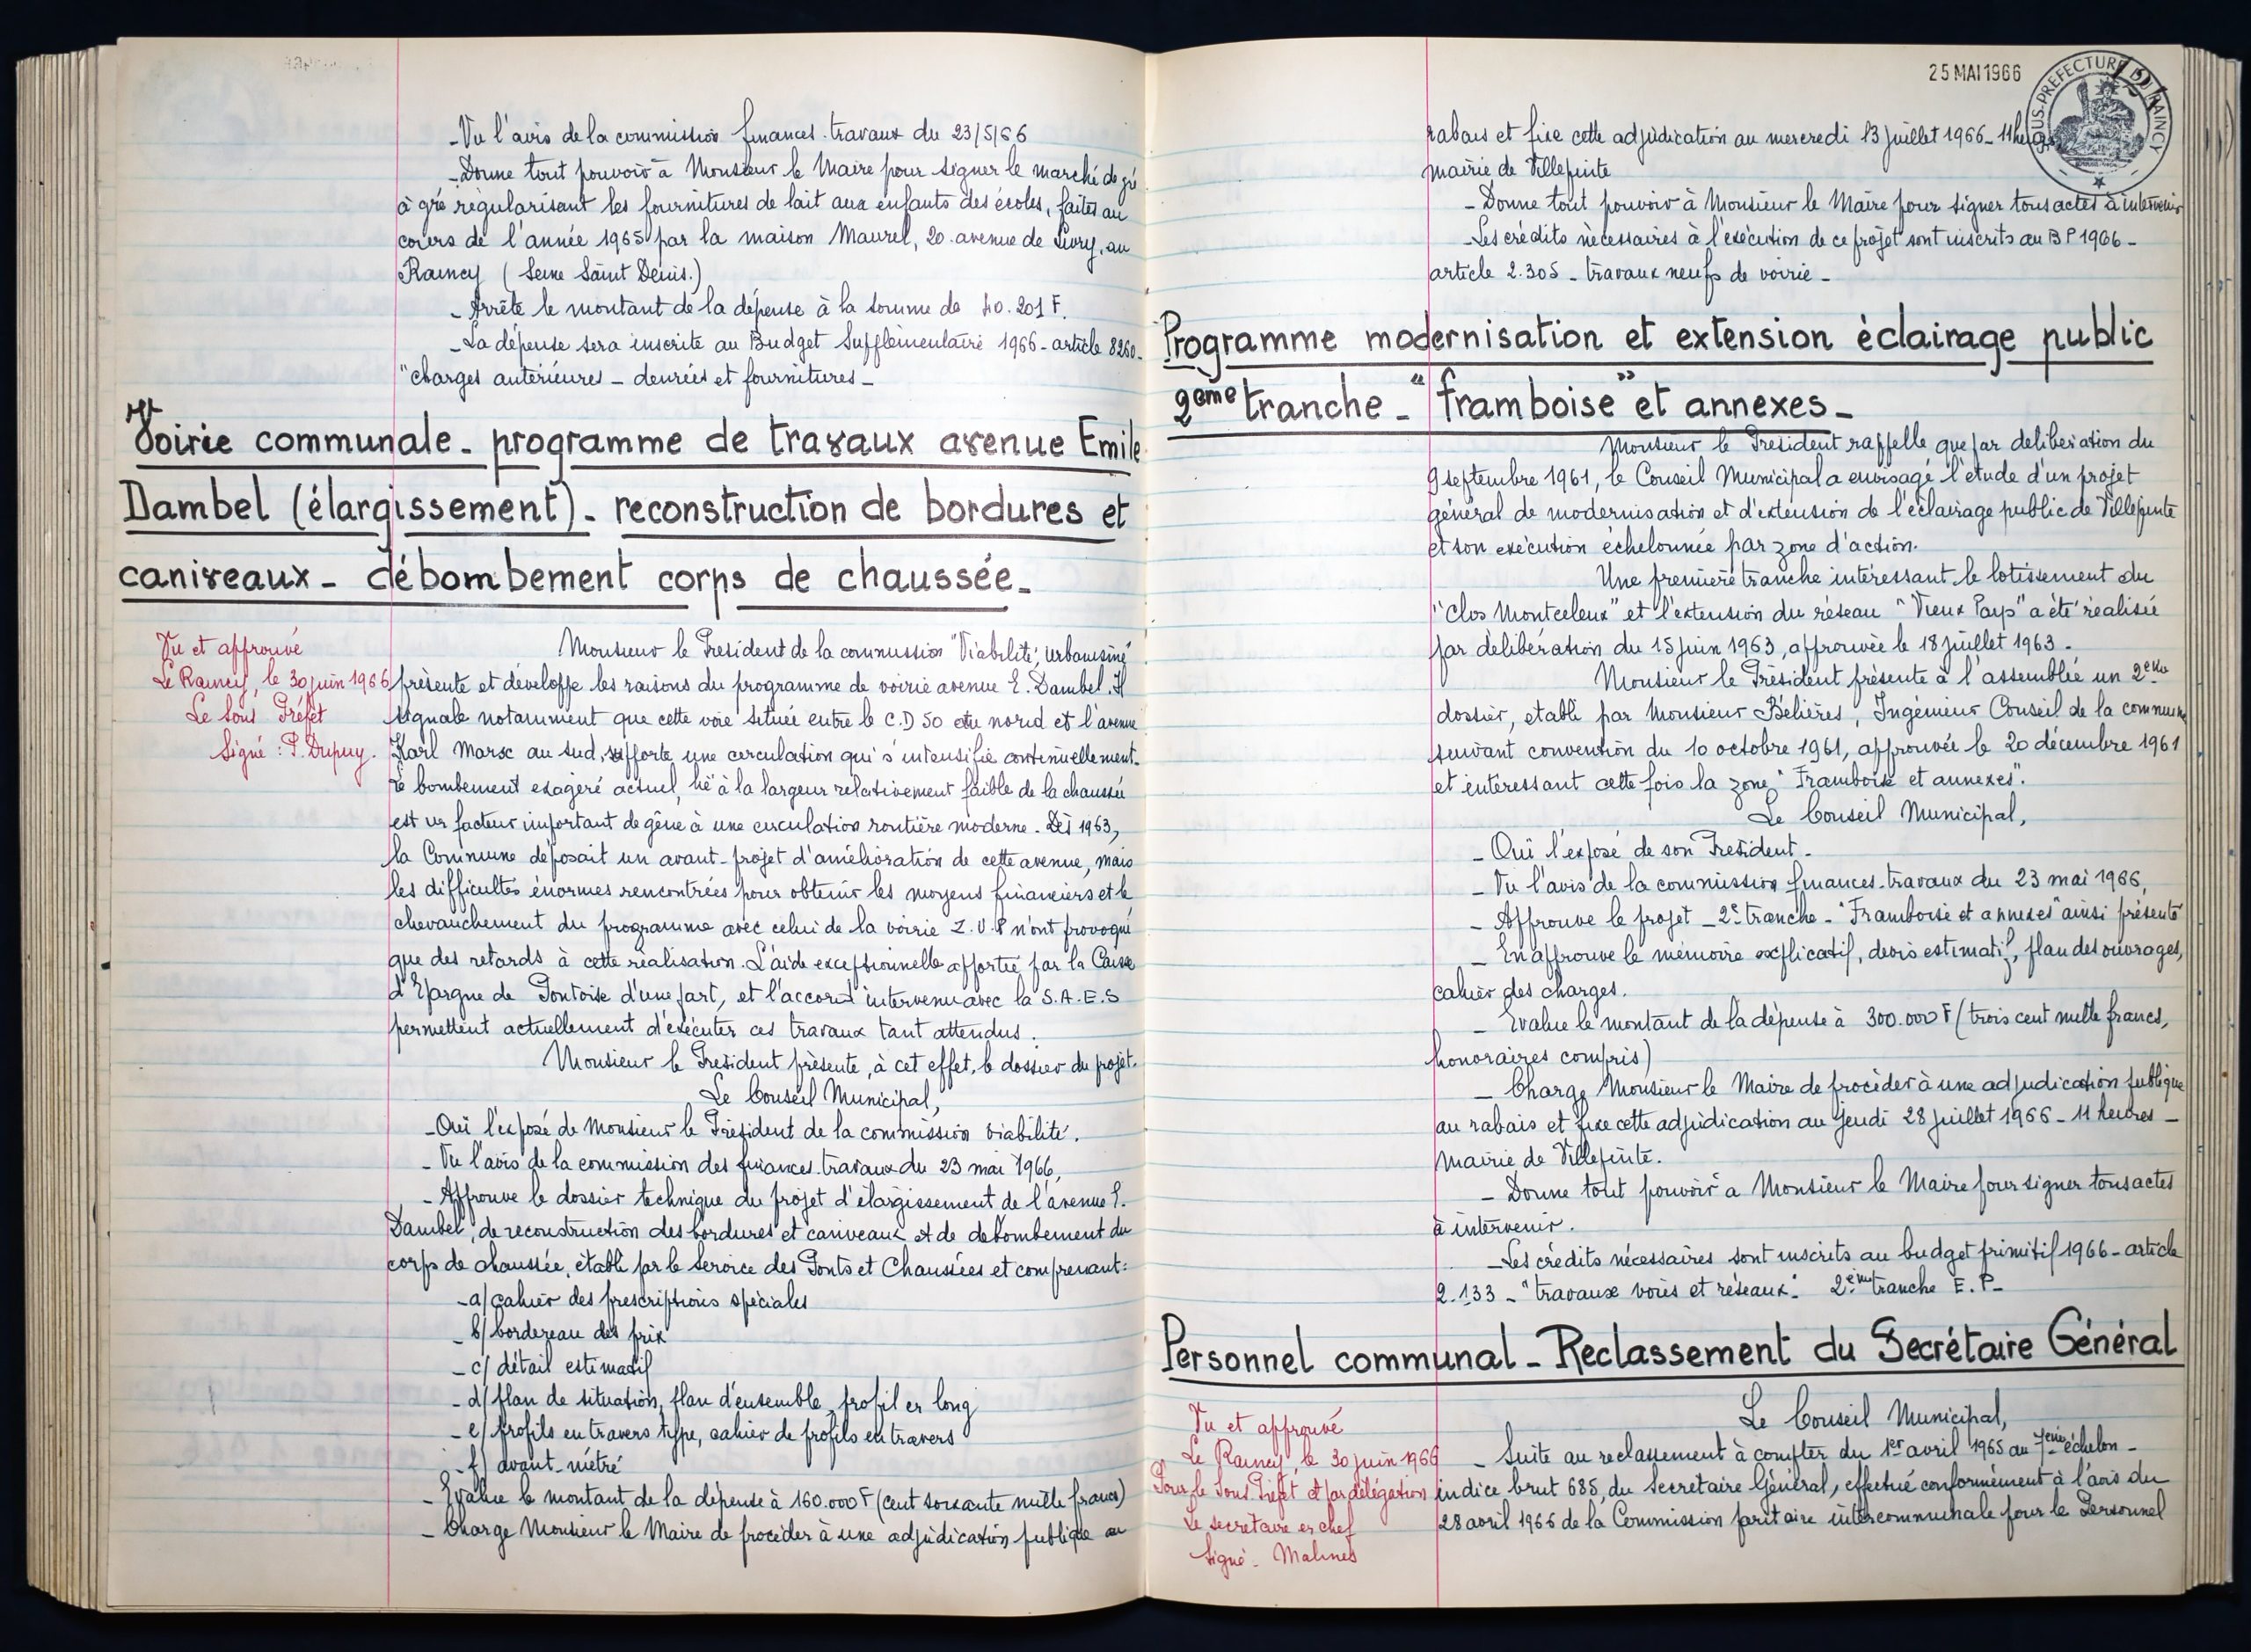 - Vu l'avis de la commission finances-travaux du 23/5/66
- Donne tout pouvoir à Monsieur le Maire pour signer le marché de gré
à gré régularisant les fournitures de lait aux enfants des écoles, faites au
cours de l'année 1965 par la maison Maurel, 20 avenue de Livry, au
Raincy (Seine Saint Denis.)
- Arrête le montant de la dépense à la somme de 40.201 F.
- La dépense sera inscrite au Budget Supplémentaire 1966 - article 8260 -
"charges antérieures - denrées et fournitures -
Voirie communale - programme de travaux avenue Emile
Dambel (élargissement) - reconstruction de bordures et
caniveaux - débombement corps de chaussée -
Vu et approuvé
Le Raincy, le 30 juin 1966
Le Sous Préfet
Signé : P. Dupuy.
Monsieur le Président de la commission "Viabilité, Urbanisme"
présente et développe les raisons du programme de voirie avenue E. Dambel. Il
signale notamment que cette voie située entre le C.D 50 au nord et l'avenue
Karl Marx au sud, supporte une circulation qui s'intensifie continuellement.
Le bombement exagéré actuel, lié à la largeur relativement faible de la chaussée
est un facteur important de gêne à une circulation routière moderne. Dès 1963,
la Commune déposait un avant-projet d'amélioration de cette avenue, mais
les difficultés énormes rencontrées pour obtenir les moyens financiers et le
chevauchement du programme avec celui de la voirie Z.U.P n'ont provoqué
que des retards à cette réalisation. L'aide exceptionnelle apportée par la Caisse
d'Epargne de Pontoise d'une part, et l'accord intervenu avec la S.A.E.S
permettent actuellement d'exécuter ces travaux tant attendus.
Monsieur le Président présente, à cet effet, le dossier du projet.
Le Conseil Municipal,
- Ouï l'exposé de Monsieur le Président de la commission viabilité.
- Vu l'avis de la commission des finances-travaux du 23 mai 1966,
- Approuve le dossier technique du projet d'élargissement de l'avenue E.
Dambel, de reconstruction des bordures et caniveaux et de débombement du
corps de chaussée, établi par le Service des Ponts et Chaussées et comprenant :
- a/ cahier des prescriptions spéciales
- b/ bordereau des prix
- c/ détail estimatif
- d/ plan de situation, plan d'ensemble, profil en long
- e/ profils en travers type, cahier de profils en travers
- f/ avant-métré
- Evalue le montant de la dépense à 160.000 F (cent soixante mille francs)
- Charge Monsieur le Maire de procéder à une adjudication publique au
25 MAI 1966
SOUS-PREFECTURE DU RAINCY
rabais et fixe cette adjudication au mercredi 13 juillet 1966 - 11 heures
mairie de Villepinte
- Donne tout pouvoir à Monsieur le Maire pour signer tous actes à intervenir
- Les crédits nécessaires à l'exécution de ce projet sont inscrits au BP 1966 -
article 2.305 - travaux neufs de voirie -
Programme modernisation et extension éclairage public
2ème tranche - "framboise" et annexes -
Monsieur le Président rappelle que par délibération du
9 septembre 1961, le Conseil Municipal a envisagé l'étude d'un projet
général de modernisation et d'extension de l'éclairage public de Villepinte
et son exécution échelonnée par zone d'action.
Une première tranche intéressant le lotissement du
"Clos Montceleux" et l'extension du réseau "Vieux Pays" a été réalisée
par délibération du 15 juin 1963, approuvée le 18 juillet 1963 -
Monsieur le Président présente à l'assemblée un 2ème
dossier, établi par Monsieur Bélières, Ingénieur Conseil de la commune
suivant convention du 10 octobre 1961, approuvée le 20 décembre 1961
et intéressant cette fois la zone "Framboise et annexes".
Le Conseil Municipal,
- Ouï l'exposé de son Président -
- Vu l'avis de la commission finances-travaux du 23 mai 1966,
- Approuve le projet - 2e tranche - "Framboise et annexes" ainsi présenté
- En approuve le mémoire explicatif, devis estimatif, plan des ouvrages,
cahier des charges.
- Evalue le montant de la dépense à 300.000 F (trois cent mille francs,
honoraires compris)
- Charge Monsieur le Maire de procéder à une adjudication publique
au rabais et fixe cette adjudication au Jeudi 28 juillet 1966 - 11 heures -
Mairie de Villepinte.
- Donne tout pouvoir à Monsieur le Maire pour signer tous actes
à intervenir.
- Les crédits nécessaires sont inscrits au budget primitif 1966 - article
2.133 - "travaux voies et réseaux". 2ème tranche E.P -
Personnel communal - Reclassement du Secrétaire Général
Vu et approuvé
Le Raincy, le 30 juin 1966
Pour le Sous Préfet et par délégation
Le secrétaire en chef
Signé - Malines
Le Conseil Municipal,
- Suite au reclassement à compter du 1er avril 1965 au 7ème échelon -
indice brut 685, du Secrétaire Général, effectué conformément à l'avis du
28 avril 1966 de la Commission paritaire intercommunale pour le Personnel